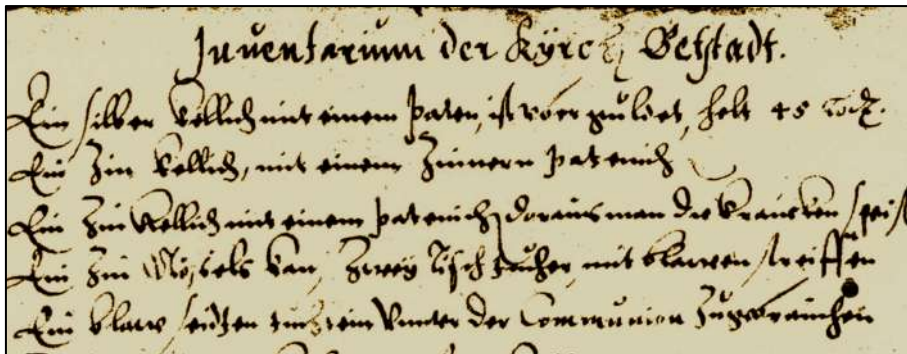 Inventarium der Kyrch Getstadt.
Ein silber Kellich mit einem paten, ist vber guldet, helt 45
Ein Zin Kellich, mit einem Zinnern patenich
Ein Zin Kellich mit einem patenich, doraus man die Krancken speist
Ein Zin Nösels Kan, Zweÿ Tisch tücher, mit blawen streiffen
Ein blaw seiden tuchlein Vnter der Communion Zugebrauchen